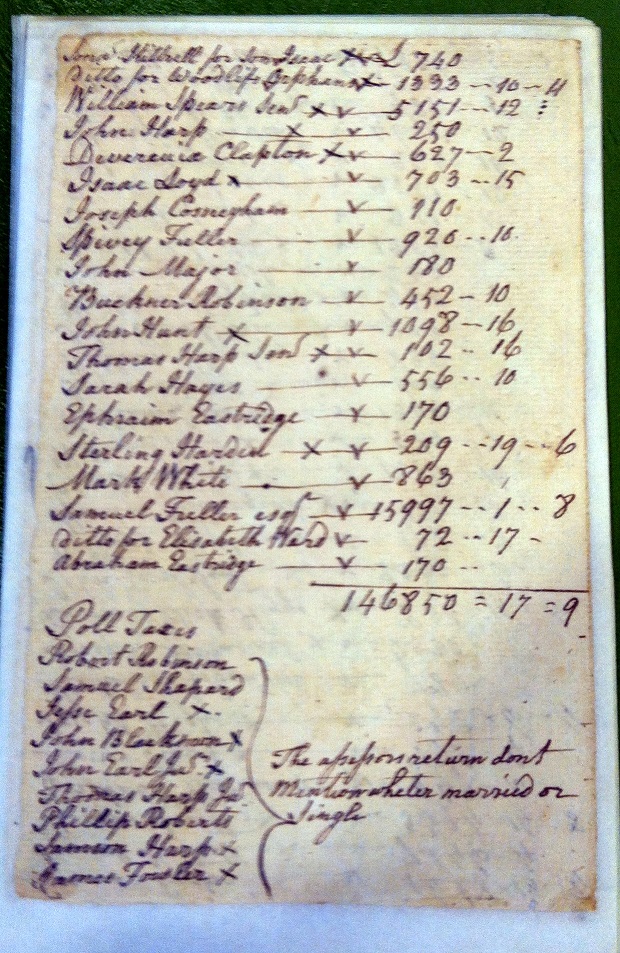 Jona Kittrell for Son Isaac x £ 740
Ditto for Woodlifs Orphans x 1333 -- 10 - 4
William Spears Senr x v 5151 -- 12
John Harp x v 250
Devereux Clapton x v 627 - 2
Isaac Loyd x v 703 -- 15
Joseph Cosnegham v 910
Spivey Fuller v 920 -- 10
John Major v 180
Buckner Robinson v 452 - 10
John Hunt x v 1098 - 16
Thomas Harp Senr x v 102 -- 16
Sarah Hayes v 556 -- 10
Ephraim Eastridge v 170
Sterling Harden x v 209 -- 19 -- 6
Mark White v 863
Samuel Fuller esqr v 15997 -- 1 -- 8
Ditto for Elisabeth Ward v 72 -- 17 -
Abraham Eastridge v 170 --
146850 = 17 = 9
Poll Taxes
Robert Robinson
Samuel Shapard
Jesse Earl x
John Blackmon x
John Earl Jur x
Thomas Harp Jur
Phillip Roberts
Samson Harp x
James Fowler x
The assessors return dont
Mention wheter married or
Single